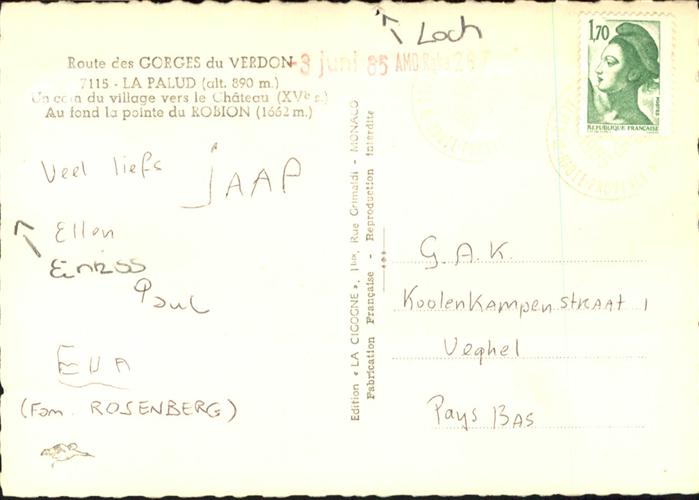 Route des GORGES du VERDON
7115 - LA PALUD (alt. 890 m.)
Un coin du village vers le Château (XVe s.)
Au fond la pointe du ROBION (1662 m.)
-3 juni 85
Loch
1,70
REPUBLIQUE FRANÇAISE
Veel liefs
JAAP
Ellen
Paul
EVA
(Fam. ROSENBERG)
Edition « LA CIGOGNE », 1bis, Rue Grimaldi - MONACO
Fabrication Française - Reproduction Interdite
G.A.K.
Koolenkampen straat 1
Veghel
Pays BAS